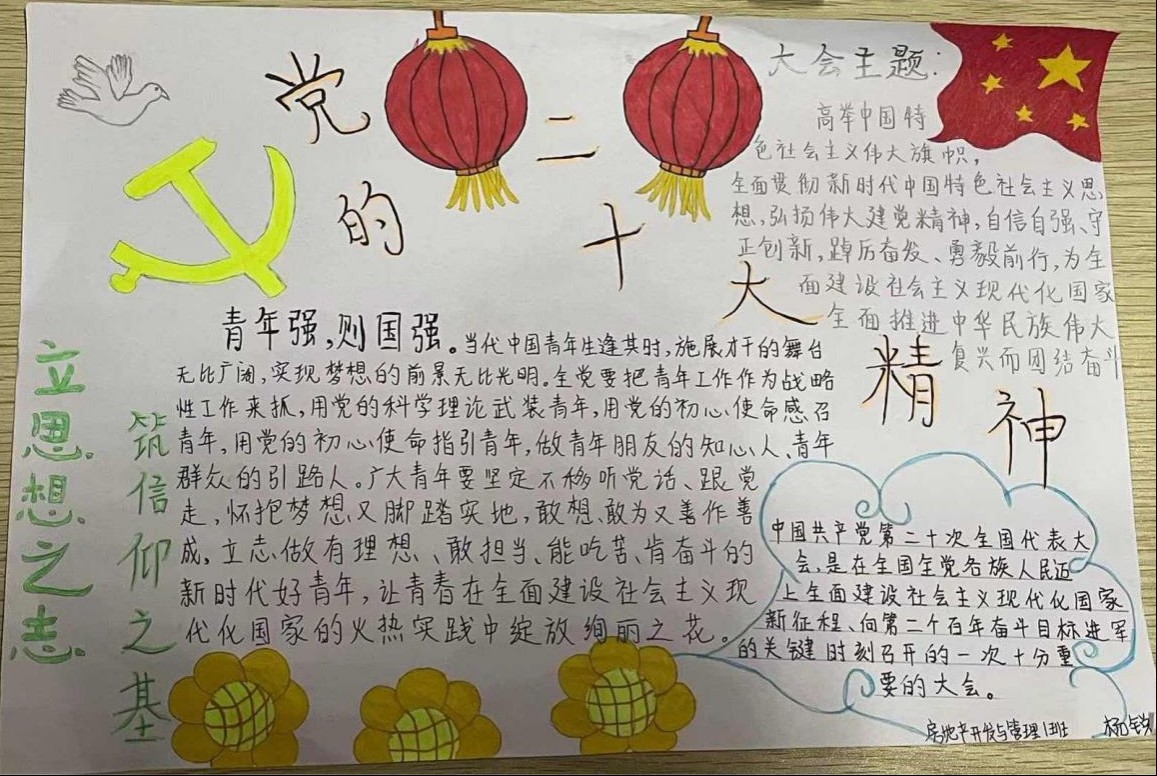 党的二十大精神
大会主题：
高举中国特
色社会主义伟大旗帜，
全面贯彻新时代中国特色社会主义思
想，弘扬伟大建党精神，自信自强、守
正创新，踔厉奋发、勇毅前行，为全
面建设社会主义现代化国家
全面推进中华民族伟大
复兴而团结奋斗
青年强，则国强。当代中国青年生逢其时，施展才干的舞台
无比广阔，实现梦想的前景无比光明。全党要把青年工作作为战略
性工作来抓，用党的科学理论武装青年，用党的初心使命感召
青年，用党的初心使命指引青年，做青年朋友的知心人、青年
群众的引路人。广大青年要坚定不移听党话、跟党
走，怀抱梦想又脚踏实地，敢想敢为又善作善
成，立志做有理想、敢担当、能吃苦、肯奋斗的
新时代好青年，让青春在全面建设社会主义现
代化国家的火热实践中绽放绚丽之花。
立思想之志
筑信仰之基
中国共产党第二十次全国代表大
会，是在全国全党各族人民迈
上全面建设社会主义现代化国家
新征程、向第二个百年奋斗目标进军
的关键时刻召开的一次十分重
要的大会。
房地产开发与管理1班 杨